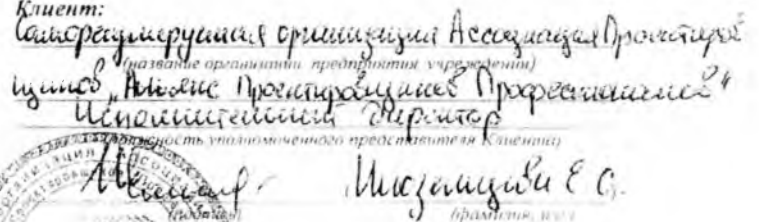 Клиент:
Саморегулируемая организация Ассоциация Проектиров
(название организации предприятия учреждения)
щиков "Альянс Проектировщиков Профессионалов"
Исполнительный директор
(должность уполномоченного представителя Клиента)
Е.С.
(подпись) (фамилия, и.о.)